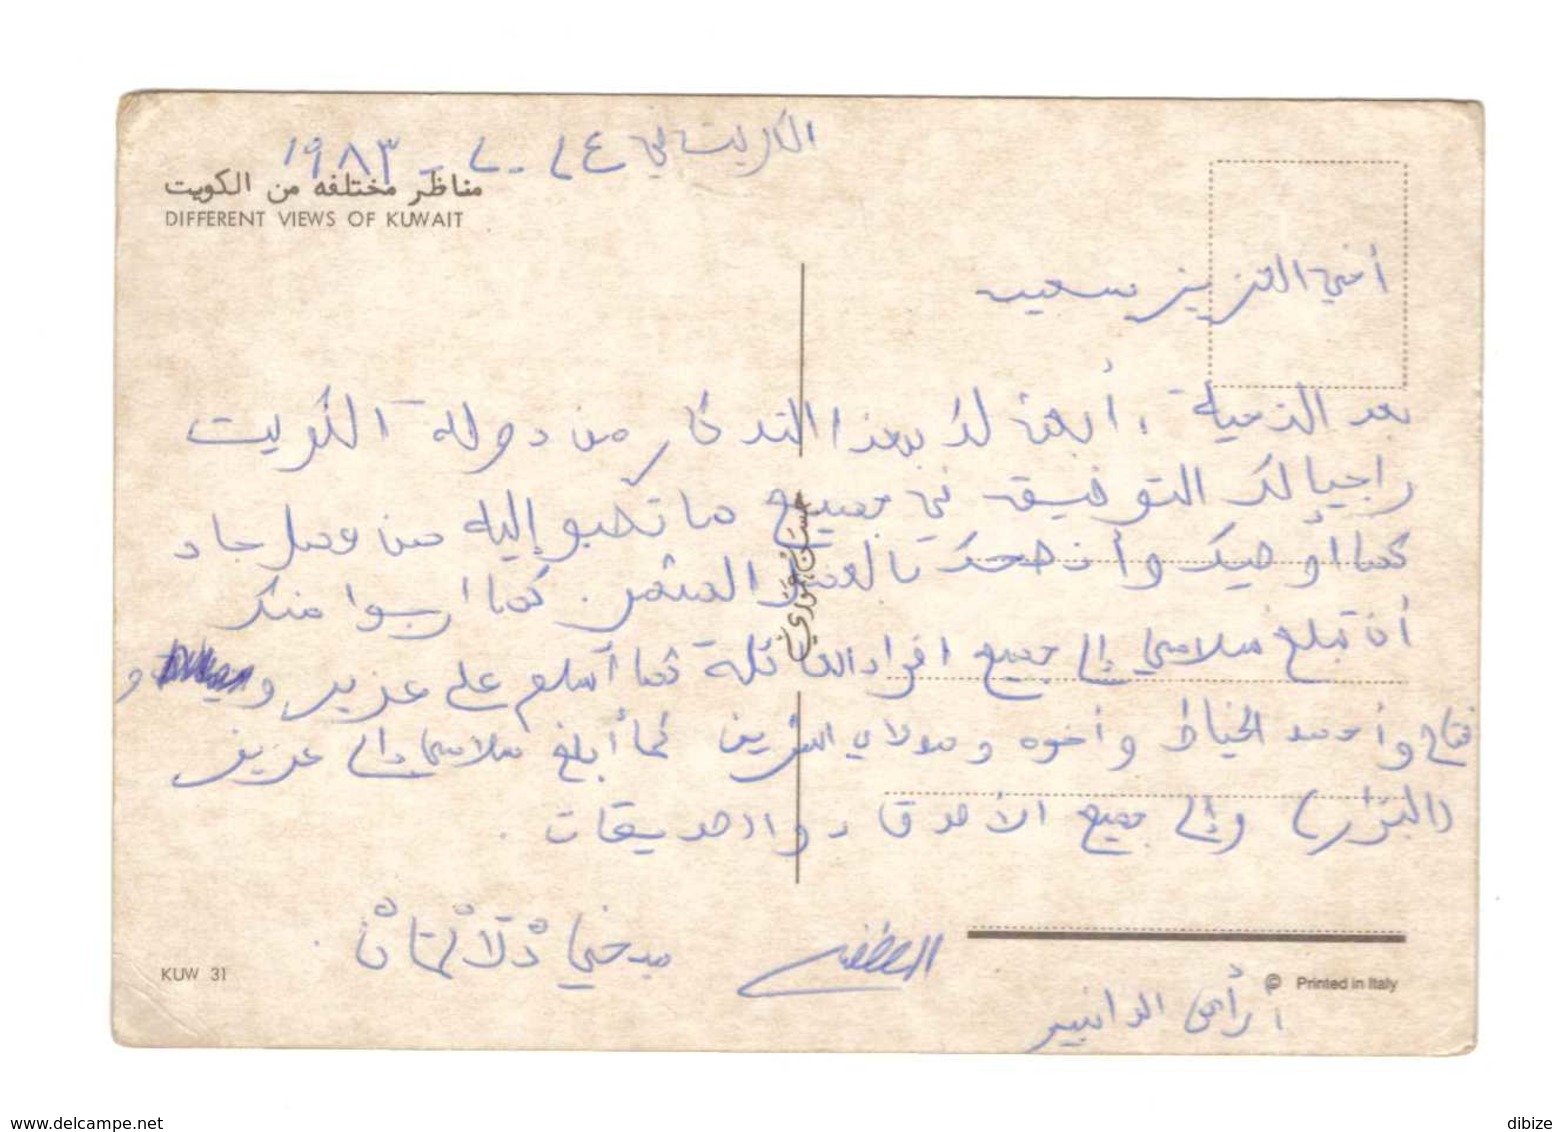 الكويت في ٢٤ - ٧ - ١٩٨٣
مناظر مختلفه من الكويت
DIFFERENT VIEWS OF KUWAIT
أخي العزيز سعيد
بعد التحية ، أبعث لك بهذا التذكار من دولة الكويت
راجيا لك التوفيق في جميع ما تصبو إليه من
كما أوصيك وأنصحك بالعمل المثمر. كما ارجوا منك
أن تبلغ سلامي إلى جميع افراد العائلة كما أسلم على عزيز و و
فتاح وأحمد الخياط وأخوه ومولاي الشريف كما أبلغ سلامي إلى عزيز
(البزار) وإلى جميع الأصدقاء والصديقات .
KUW 31
© Printed in Italy